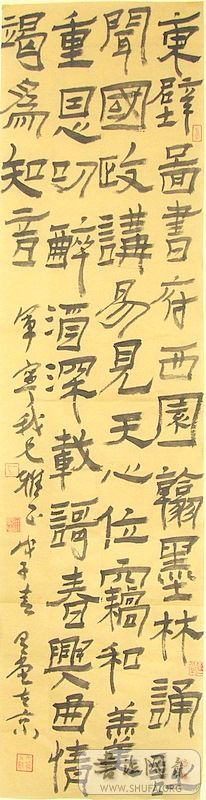 東壁啚書府西園翰墨林誦
聞國政講易見天心位竊和羹
重恩叨醉酒深載謌春興曲情
竭為知音
兄雅正戊子春
WWW.SHUFA.ORG